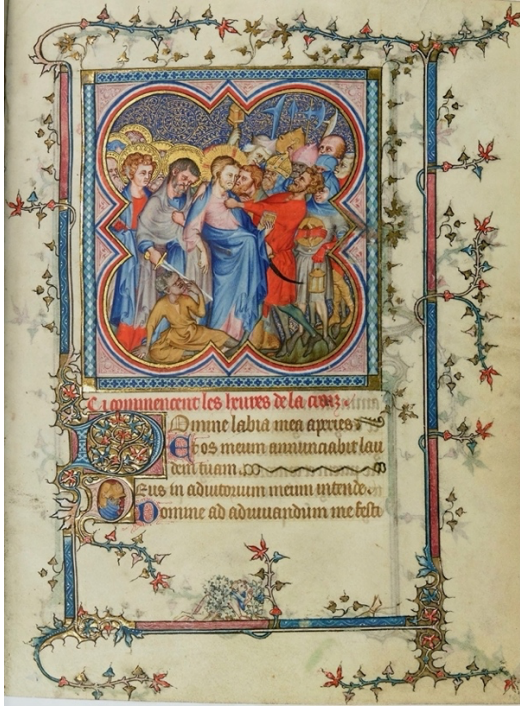 Ci commencent les heures de la croiz
Domine labia mea aperies
Et os meum annunciabit lau
dem tuam.
Deus in adiutorium meum intende.
Domine ad adiuuandum me festi